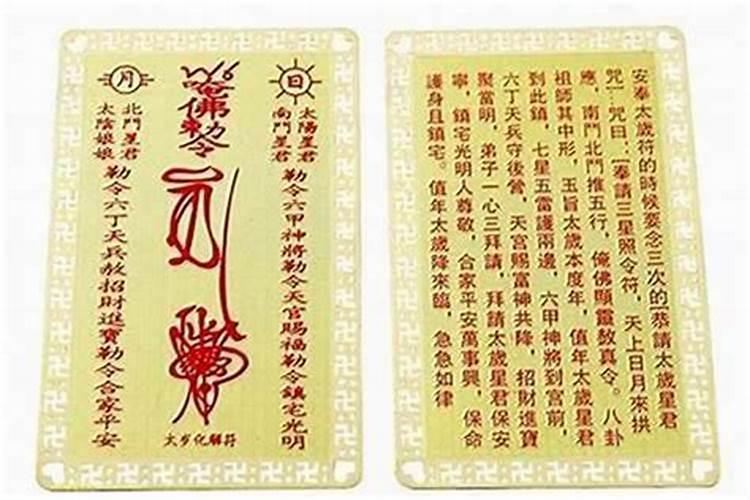 日
太陽星君
南鬥星君
勒令六甲神將勒令天官賜福勒令鎮宅光明
唵佛勅令
太岁化解符
月
北鬥星君
太陰娘娘
勒令六丁天兵赦招財進寶勒令合家平安
安奉太歲符的時候要念三次的[恭請太歲星君
咒]…咒曰:[奉請三星照令符,天上日月來拱
應,南鬥北鬥推五行,俺佛顯靈敖真令。八卦
祖師其中形,玉旨太歲本度年,值年太歲星君
到此鎮,七星五雷護兩邊,六甲神將到宮前,
六丁天兵守後營,天官賜富神共降,招財進寶
聚當明,弟子一心三拜請,拜請太歲星君保安
寧,鎮宅光明人尊敬,合家平安萬事興,保命
護身且鎮宅。值年太歲降來臨,急急如律